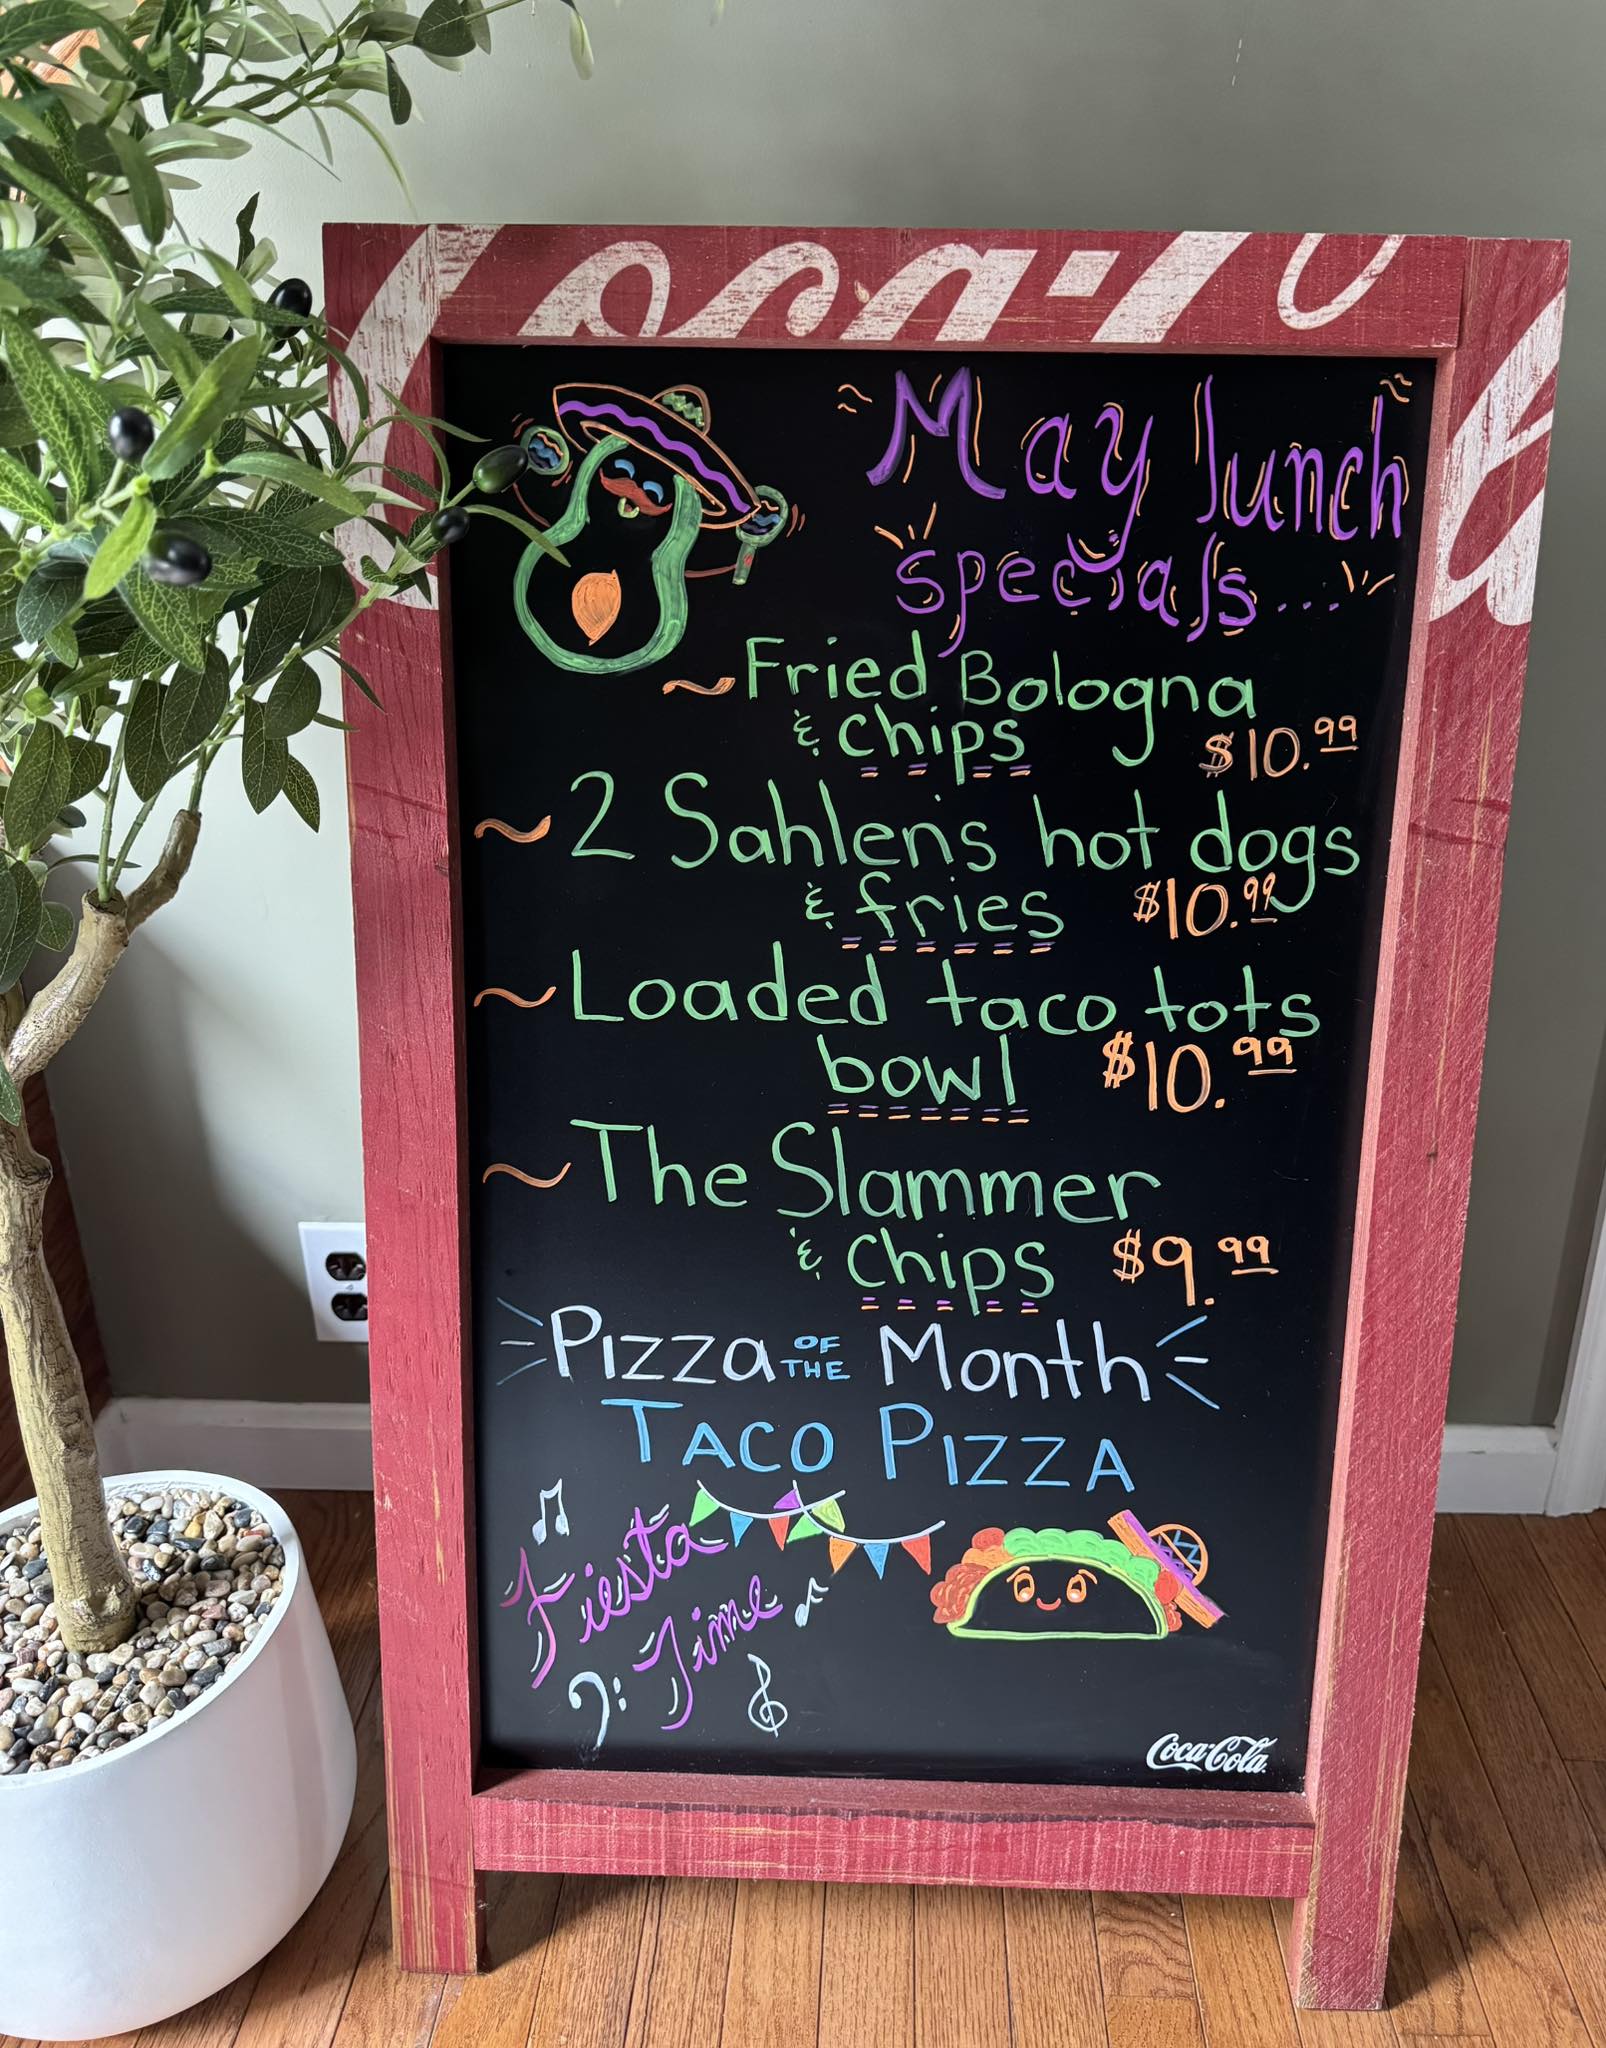 Coca-Cola
May lunch
specials...
~Fried Bologna
& chips $10.99
~2 Sahlen's hot dogs
& fries $10.99
~Loaded taco tots
bowl $10.99
~The Slammer
& chips $9.99
Pizza OF THE Month
TACO PIZZA
Fiesta
Time
Coca-Cola